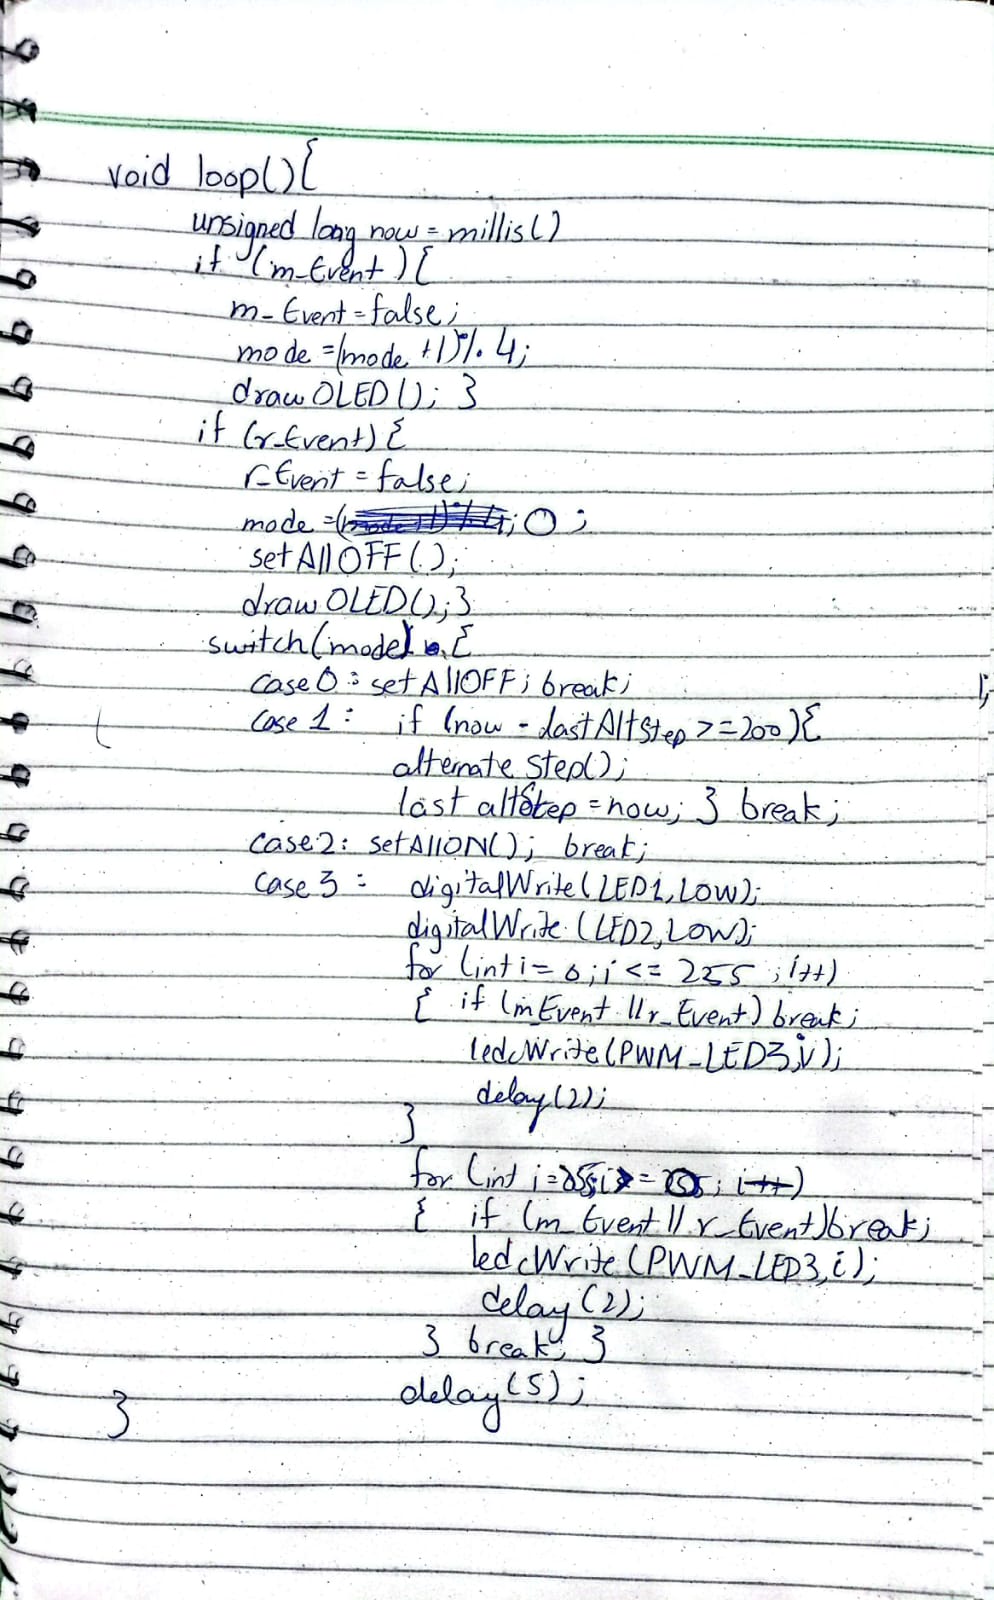 void loop(){
unsigned long now = millis()
if (m_Event){
m_Event = false;
mode = (mode +1)% 4;
drawOLED(); }
if (r_Event) {
r_Event = false;
mode = 0;
setAllOFF();
drawOLED(); }
switch(mode) {
case 0: setAllOFF; break;
case 1: if (now - lastAltStep >= 200){
alternate Step();
last altStep = now; } break;
case 2: setAllON(); break;
case 3: digitalWrite(LED1,LOW);
digitalWrite (LED2,LOW);
for (int i = 0; i <= 255 ; i++)
{ if (m_Event || r_Event) break;
ledcWrite(PWM_LED3,i);
delay(2);
}
for (int i=255; i>= 0; i--)
{ if (m_Event || r_Event) break;
ledcWrite (PWM_LED3, i);
delay (2);
} break; }
delay(5);
}